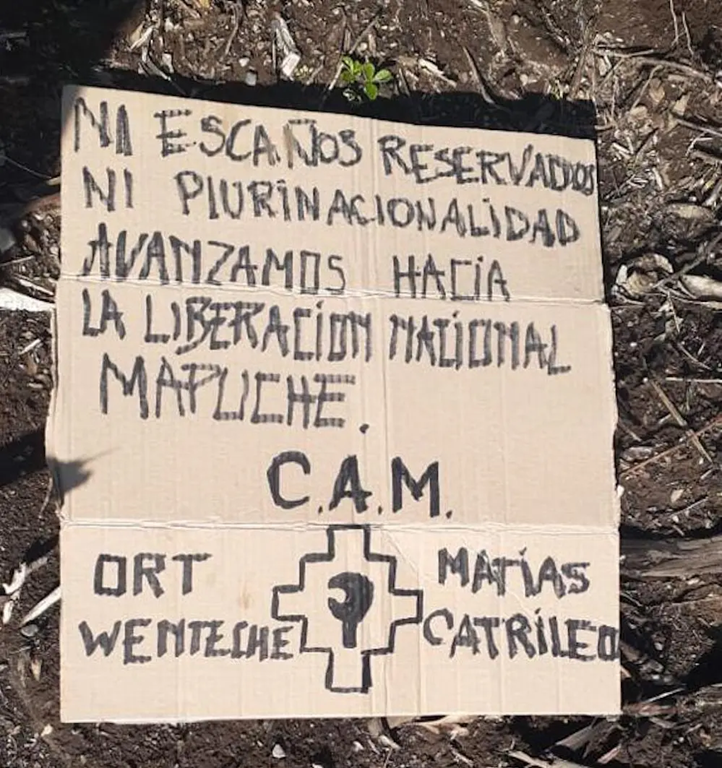 NI ESCAÑOS RESERVADOS
NI PLURINACIONALIDAD
AVANZAMOS HACIA
LA LIBERACIÓN NACIONAL
MAPUCHE.
C.A.M.
ORT
WENTECHE
MATÍAS
CATRILEO